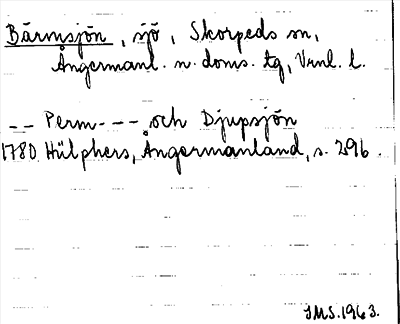 Bärmsjön, sjö, Skorpeds sn,
Ångermanl. n. doms. tg, Vrnl. l.
-- Perm--- och Djupsjön
1780 Hülphers, Ångermanland, s. 296.
JMS. 1963.